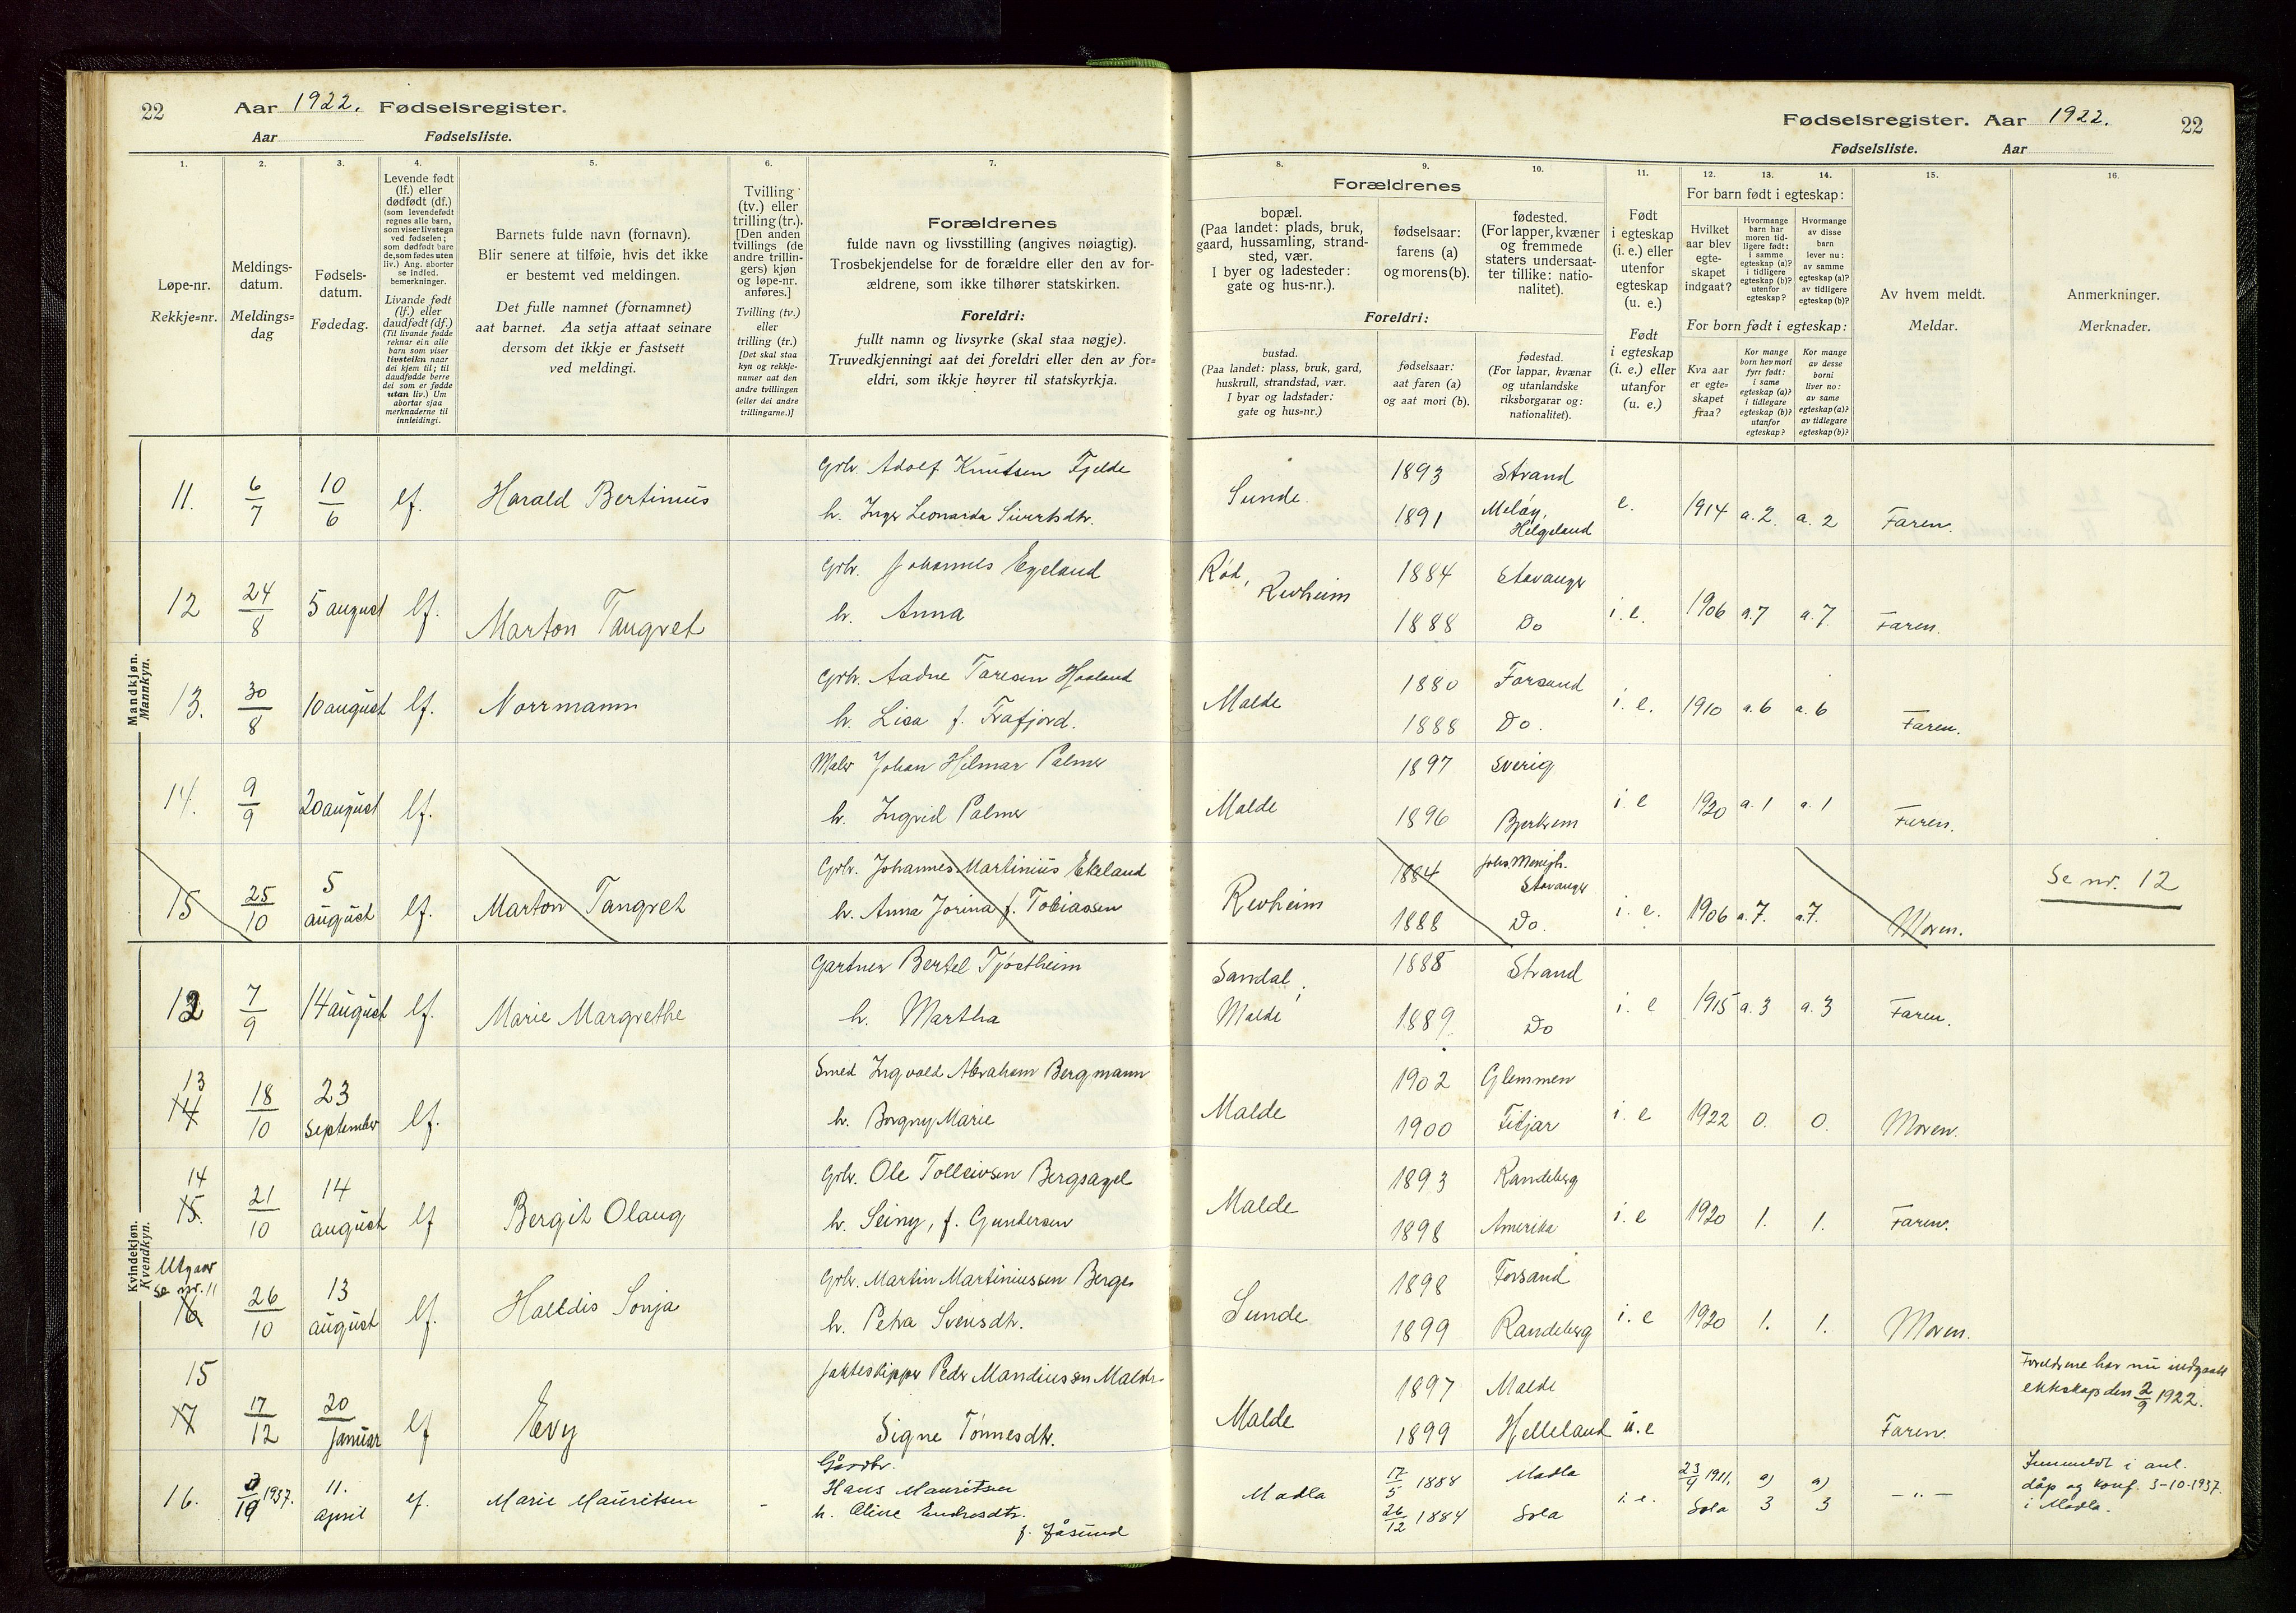 22 Aar 1922. Fødselsregister.
Aar Fødselsliste.
Fødselsregister. Aar 1922. 22
Fødselsliste. Aar
1.
Løpe-nr.
Rekkje=nr.
2.
Meldings-
datum.
Meldings=
dag
3.
Fødsels-
datum.
Fødedag.
4.
Levende født
(lf.) eller
dødfødt (df.)
(som levendefødt
regnes alle barn,
som viser livstegn
ved fødselen;
som dødfødt bare
de, som fødes uten
liv.) Ang. aborter
se indled.
bemerkninger.
Livande født
(lf.) eller
daudfødt (df.)
(Til livande fødde
reknar ein alle
barn som viser
livsteikn naar
dei kjem til; til
daudfødde berre
dei som er fødde
utan liv.) Um
abortar sjaa
merknaderne til
innleidingi.
5.
Barnets fulde navn (fornavn).
Blir senere at tilføie, hvis det ikke
er bestemt ved meldingen.
Det fulle namnet (fornamnet)
aat barnet. Aa setja attaat seinare
dersom det ikkje er fastsett
ved meldingi.
6.
Tvilling
(tv.) eller
trilling (tr.).
[Den anden
tvillings (de
andre trillin-
gers) kjøn
og løpe-nr.
anføres.]
Tvilling (tv.)
eller
trilling (tr.)
[Det skal staa
kyn og rekkje-
numer aat den
andre tvillingen
(eller dei andre
trillingarne.)]
7.
Forældrenes
fulde navn og livsstilling (angives nøiagtig).
Trosbekjendelse for de forældre eller den av for-
ældrene, som ikke tilhører statskirken.
Foreldri:
fullt namn og livsyrke (skal staa nøgje).
Truvedkjenningi aat dei foreldri eller den av for=
eldri, som ikkje høyrer til statskyrkja.
8.
Forældrenes
bopæl.
(Paa landet: plads, bruk,
gaard, hussamling, strand-
sted, vær.
I byer og ladesteder:
gate og hus-nr.).
Foreldri:
bustad.
(Paa landet: plass, bruk, gard,
huskrull, strandstad, vær.
I byar og ladstader:
gate og hus=nr.)
9.
fødselsaar:
farens (a)
og morens (b).
fødselsaar:
aat faren (a)
og aat mori (b).
10.
fødested.
(For lapper, kvæner
og fremmede
staters undersaat-
ter tillike: natio-
nalitet).
fødestad.
(For lappar, kvænar
og utanlandske
riksborgarar og:
nationalitet).
11.
Født
i egteskap
(i. e.) eller
utenfor
egteskap
(u. e.)
Født
i egteskap
(i. e.) eller
utanfor
(u. e.)
12. 13. 14.
For barn født i egteskap:
Hvilket
aar blev
egte-
skapet
indgaat?
Hvormange
barn har
moren tid-
ligere født:
i samme
egteskap (a)?
i tidligere
egteskap (b)?
utenfor
egteskap?
Hvormange
av disse
barn
lever nu:
av samme
egteskap (a)?
av tidligere
egteskap (b)?
For born født i egteskap:
Kva aar
er egte=
skapet
fraa?
Kor mange
born hev mori
fyrr født:
i same
egteskap (a)?
i tidlegare
egteskap (b)?
utanfor
egteskap?
Kor mange
av desse
borni
liver no:
av same
egteskap (a)?
av tidlegare
egteskap (b)?
15.
Av hvem meldt.
Meldar.
16.
Anmerkninger.
Merknader.
Mandkjøn.
Mannkyn.
11. 6/7 10/6 lf. Harald Bertinius Grbr. Adolf Knutsen Fjelde
h. Inger Leonarda Sivertsdtr. Sunde. 1893 Strand
1891 Meløy, Helgeland e. 1914 a. 2. a. 2 Faren.
12 24/8 5 august lf. Marton Tangvet Grbr. Johannes Egeland
h. Anna Rød, Revheim 1884 Stavanger
1888 Do i. e. 1906 a. 7 a. 7. Faren.
13. 30/8 10 august lf. Norrmann Grbr. Aadne Taresen Haaland
h. Lisa f. Frafjord. Malde 1880 Forsand
1888 Do. i. e. 1910 a. 6 a. 6 Faren.
14. 9/9 20 august lf. Maler Johan Hilmar Palmer
h. Ingrid Palmer Malde 1897 Sverig
1896 Bjerkrem i. e 1920 a. 1 a. 1 Faren.
15 25/10 5 august lf. Marton Tangvet Grbr. Johannes Martinius Ekeland
h. Anna Jorina f. Tobiassen Revheim 1884 Johs. Menigh. Stavanger
1888 Do. i. e. 1906 a. 7. a. 7. Moren. Se nr. 12
Kvindekjøn.
Kvendkyn.
12 7/9 14 august lf. Marie Margrethe Gartner Bertel Tjøstheim
h. Martha Sandal, Malde 1888 Strand
1889 Do i. e 1915 a. 3 a. 3 Faren.
13
14 18/10 23 September lf. Smed Ingvald Abraham Bergmann
h. Borgny Marie Malde 1902 Glemmen
1900 Fitjar i. e 1922 0. 0. Moren.
14
15. 21/10 14 august lf Bergit Olaug Grbr. Ole Tolleivsen Bergsagel
h. Seiny, f. Gundersen Malde 1893 Randeberg
1898 Amerika i. e 1920 1. 1. Faren.
Utgaar
se nr. 11
16 26/10 13 august lf. Halldis Sonja Grbr. Martin Martiniussen Berge
h. Petra Svensdtr. Sunde 1898 Forsand
1899 Randeberg i. e 1920 1. 1. Moren.
15
17 17/12 20/Januar lf Evy Jakteskipper Peder Mandiussen Malde
Signe Tønnesdtr. Malde 1897 Malde
1899 Helleland u. e Faren. Foreldrene har nu indgaatt
ekteskap den 2/9 1922.
16. 3/10 1937. 11. april lf. Marie Mauritsen - Gårdbr.
Hans Mauritsen
h. Oline Endresdtr.
f. Jåsund Madla 17/5 1888 Madla
26/12 1884 Sola i. e. 23/4 1911. Sola a) 3 a) 3 — „ — Innmeldt i anl.
dåp og konf. 3-10-1937.
i Madla.